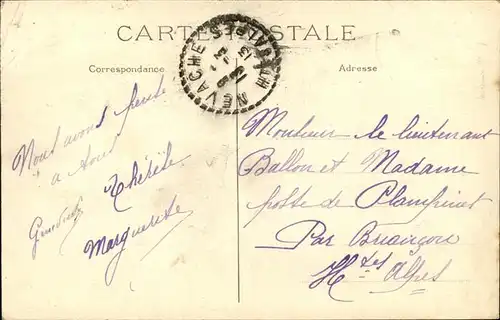 CARTE POSTALE
NEVACHE
HTES ALPES
Correspondance
Adresse
Nous avons pensé
a vous
Thérèse
Geneviève
Marguerite
Monsieur le lieutenant
Ballon et Madame
poste de Plampinet
Par Briançon
Htes Alpes